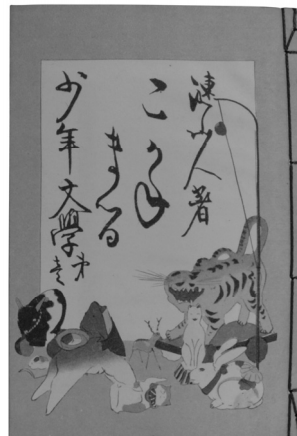 漣山人著
こがね
まる
少年文學第壱